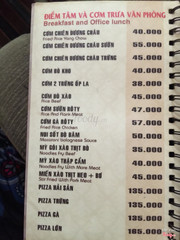 ĐIỂM TÂM VÀ CƠM TRƯA VĂN PHÒNG
Breakfast and Office lunch
CƠM CHIÊN DƯƠNG CHÂU 40.000
Fried Rice Yang Chow
CƠM CHIÊN DƯƠNG CHÂU SƯỜN 55.000
CƠM CHIÊN DƯƠNG CHÂU TRỨNG 45.000
CƠM BÒ KHO 40.000
CƠM 2 TRỨNG ỐP LA 38.000
CƠM BÒ XÀO 45.000
Rice Beef
CƠM SƯỜN RÔTY 47.000
Rice And Pork Meat
CƠM GÀ RÔTY 57.000
Fried Rice Chicken
NUI SỐT BÒ BẰM 45.000
NUI XÀO BÒ
MỲ GÓI XÀO BÒ 35.000
Noodles Fry Beef
MỲ XÀO THẬP CẨM 40.000
Noodles Fry With More Meat
MIẾN XÀO THỊT HEO + BÒ 45.000
Stir Fried With Pork Meat
PIZZA HẢI SẢN 135.000
PIZZA TRỨNG 125.000
PIZZA GÀ 135.000
PIZZA LỚN 165.000